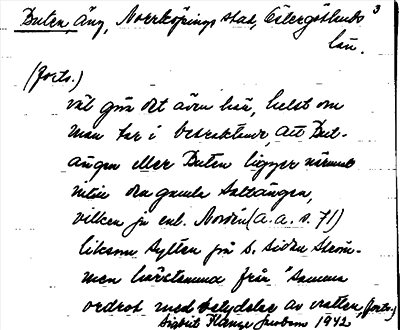 Buten, äng, Norrköpings stad, Östergötlands 3
län.
(forts.)
väl göra det även här, helst om
man tar i betraktande, att But-
ängen eller Buten ligger närmast
intill den gamla Saltängen,
vilken ju enl. Nordén (a.a. s. 71)
liksom Sylten på s. sidan Ström-
men härstamma från "samma
ordrot med betydelse av vatten, (forts.)
1942